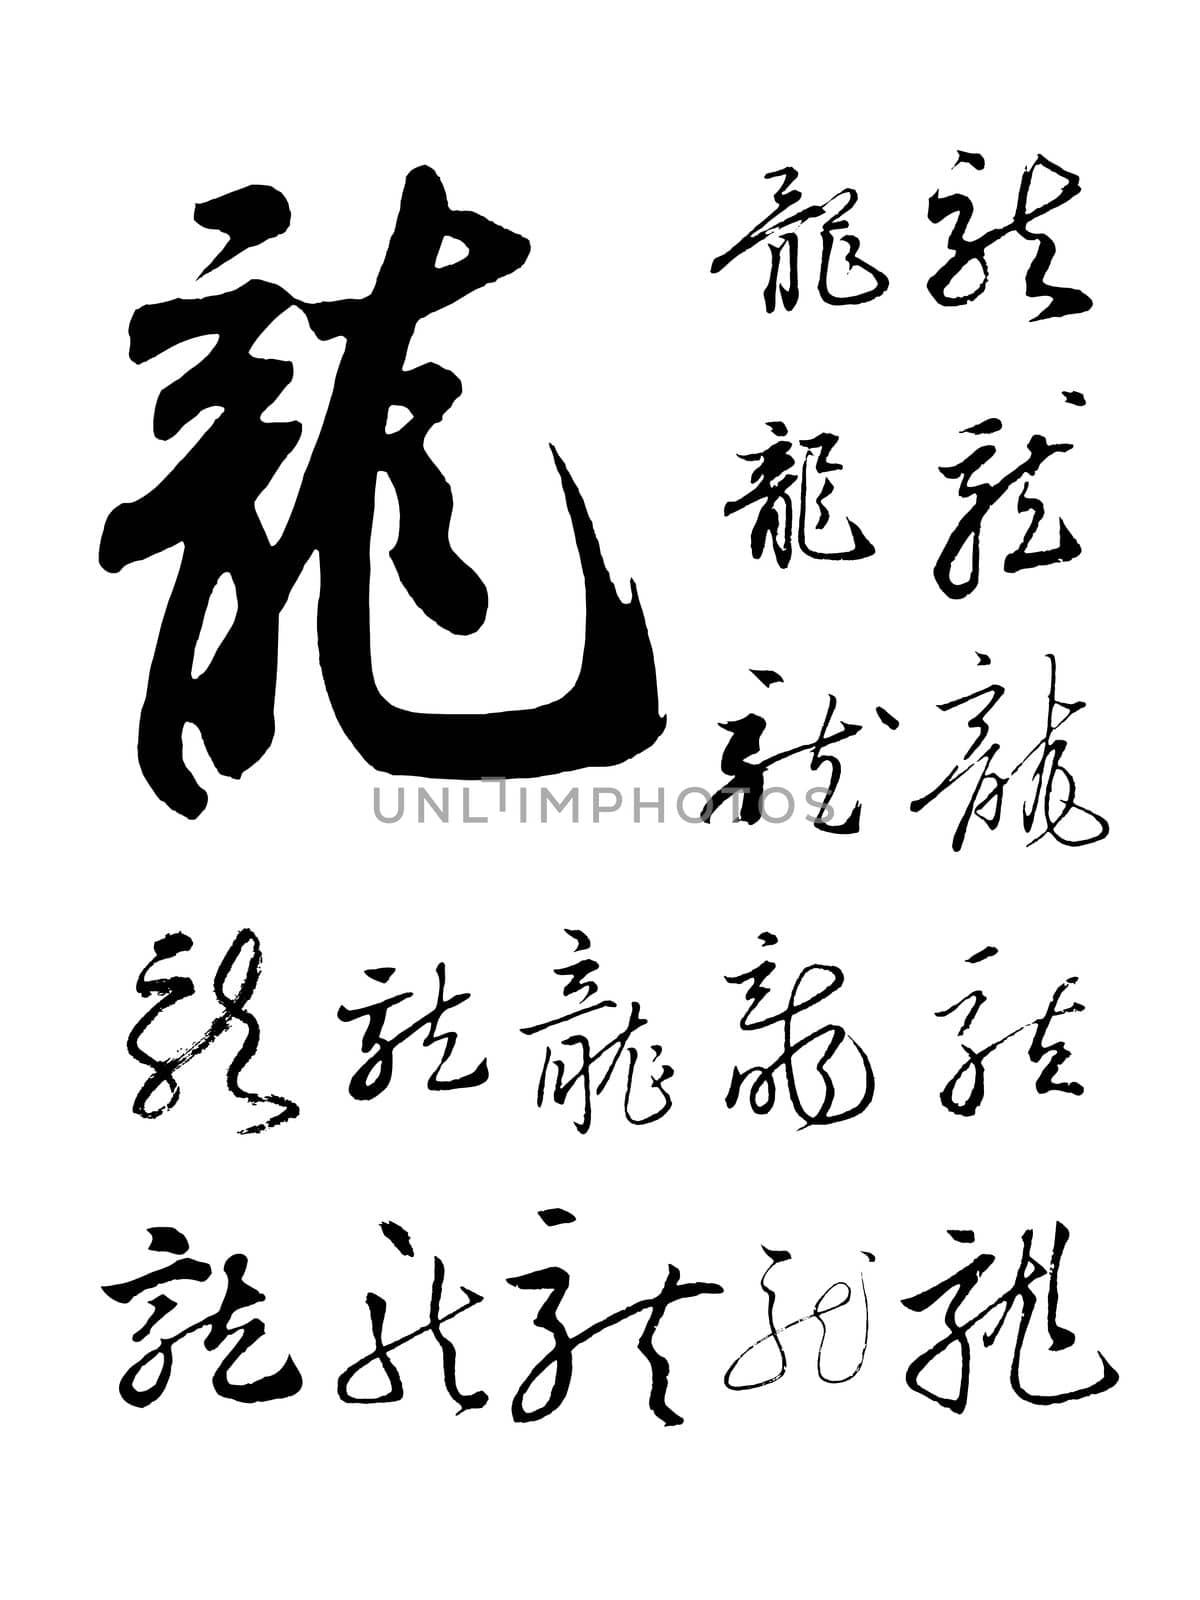 龍 龍 龍
龍 龍
龍 龍
UNLIMPHOTOS
龍 龍 龍 龍 龍
龍 龍 龍 龍 龍